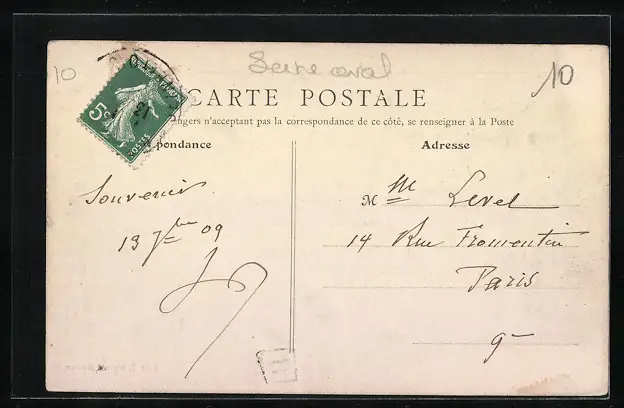 10
Seine aval
10
CARTE POSTALE
angers n'acceptant pas la correspondance de ce côté, se renseigner à la Poste
pondance
Adresse
5c
POSTES
Souvenir
13 7bre 09
Mlle Level
14 Rue Fromentin
Paris
9